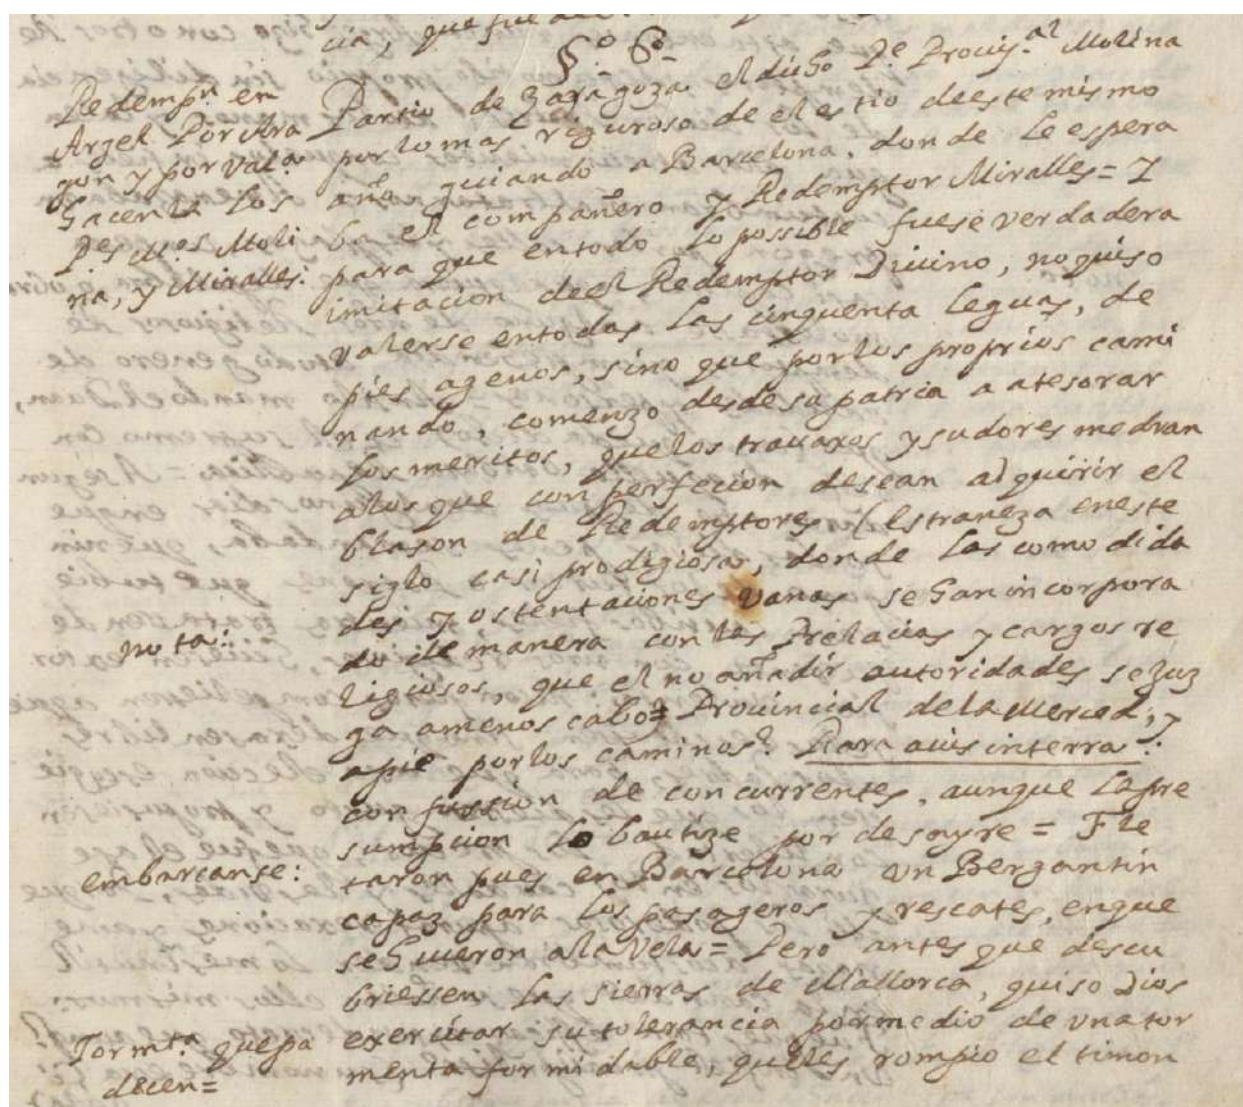 cia, que fue
§.º 6º
Redempⁿ en
Argel Por Ara
gon y por Valª
hacenla los
Pes Mos Moli
na, y Miralles:
Partio de Zaragoza el dicho Pe Provijal Molina
por lo mas riguroso de el estio deeste mismo
año guiando a Barcelona, donde le espera
ba el compañero y Redemptor Miralles = Y
para que entodo lo possible fuese verdadera
imitacion deel Redemptor Divino, no quiso
valerse entodas las cinquenta leguas, de
pies agenos, sino que por los proprios cami
nando, comenzo desde sa patria a atesorar
los meritos, que los travaxos y sudores medran
alos que con perfecion desean adquirir el
blason de Redemptores (Estrañeza eneste
siglo casi prodigiosa, donde las como dida
des y ostentaciones vanas se han incorpora
nota:
do de manera con las Prelacias y cargos re
ligiosos, que el no añadir autoridades se juz
ga amenos cabo = Provincial dela Merced, y
apie por los caminos? Rara auis interra:
confussion de concurrentes, aunque la pre
sumpcion lo bautize por desayre = Fle
embarcanse:
taron pues en Barcelona un Bergantin
capaz para los pasageros y rescates, enque
se hicieron ala Vela = Pero antes que descu
briessen las sierras de Mallorca, quiso Dios
Tormtª que pa
decen =
exercitar su tolerancia pormedio de vna tor
menta formidable, queles rompio el timon